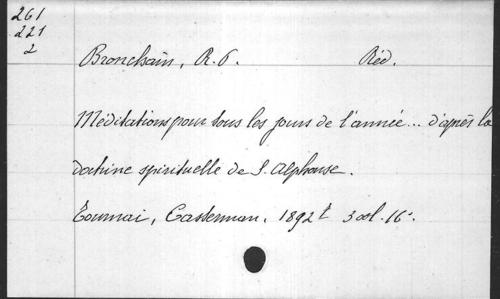 261
221
2
Bronchain, R. P. Réd.
Méditations pour tous les jours de l'année... d'après la
doctrine spirituelle de S. Alphonse.
Tournai, Casterman, 1892t 3 vol. 16°.